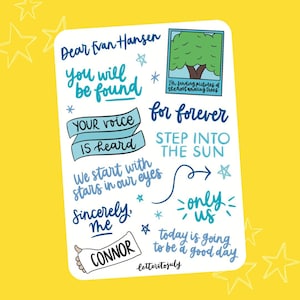 Dear Evan Hansen
you will
be found
I'm sending pictures of
the most amazing trees
for forever
YOUR voice
IS heard
STEP INTO
THE SUN
We start with
stars in our eyes
only
us
Sincerely,
me
CONNOR
today is going
to be a good day